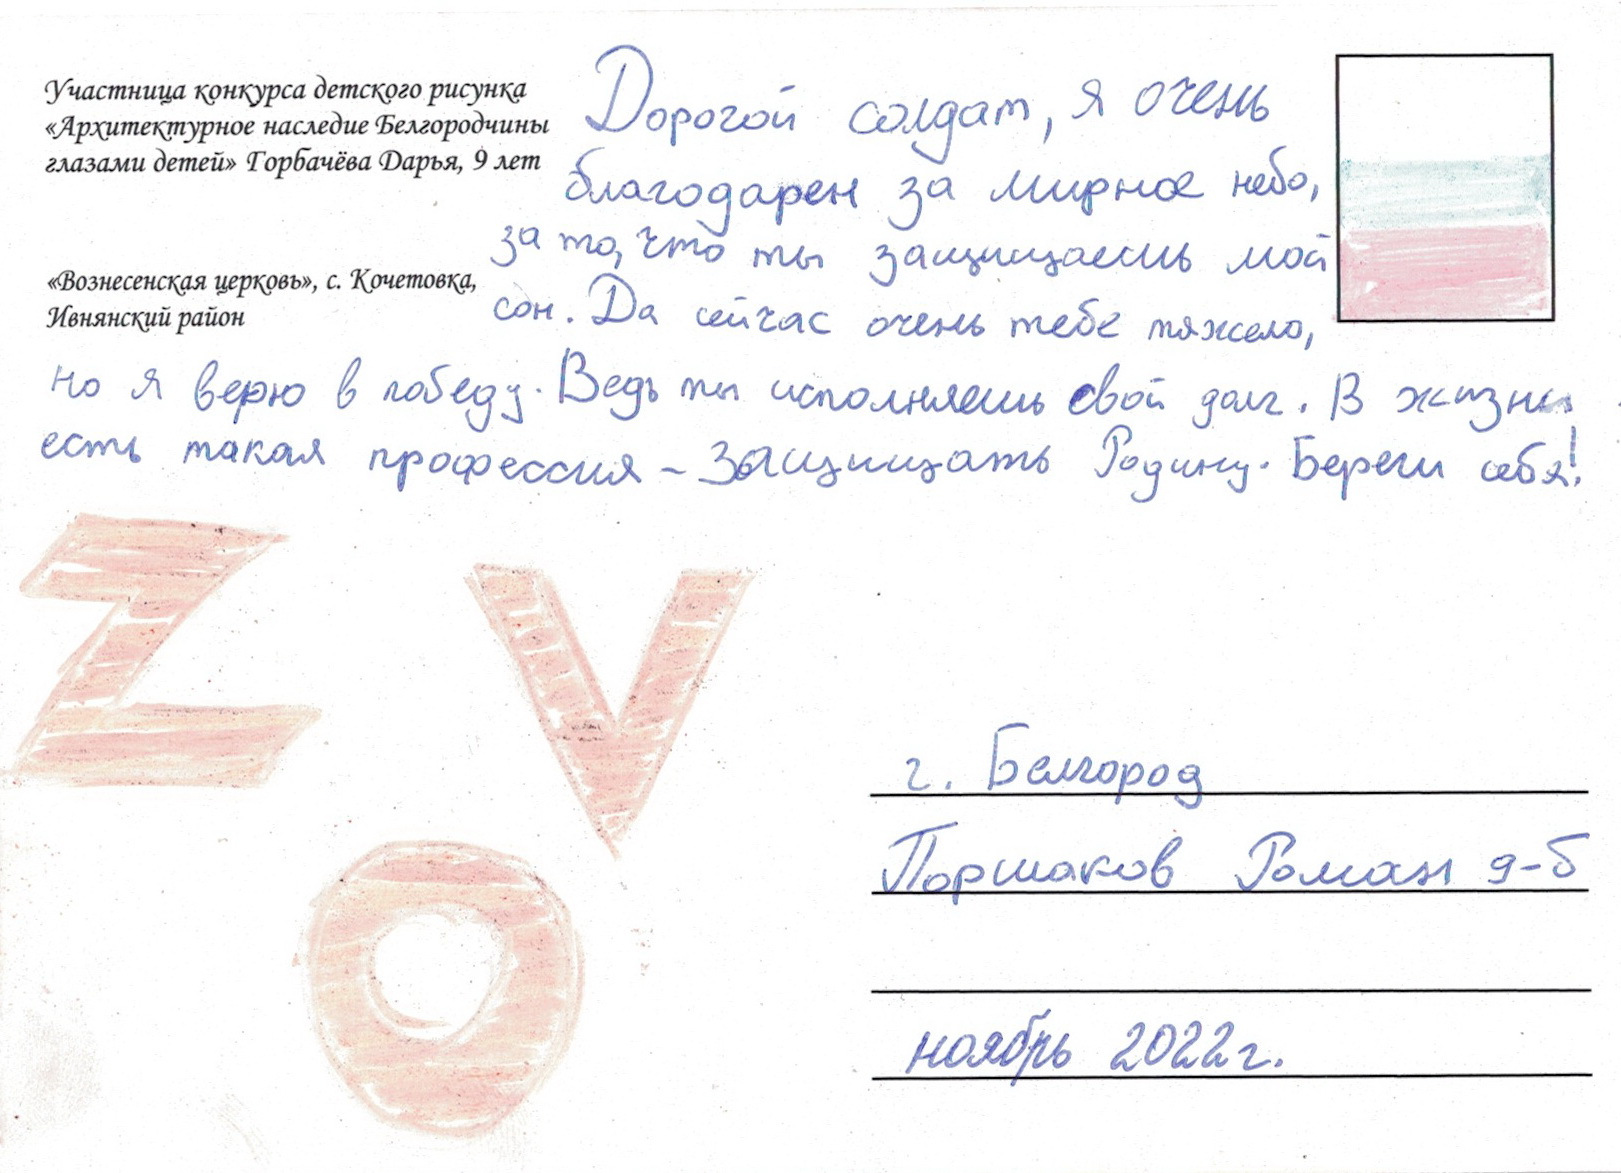 Участница конкурса детского рисунка
«Архитектурное наследие Белгородчины
глазами детей» Горбачёва Дарья, 9 лет
«Вознесенская церковь», с. Кочетовка,
Ивнянский район
Дорогой солдат, я очень
благодарен за мирное небо,
за то, что ты защищаешь мой
сон. Да сейчас очень тебе тяжело,
но я верю в победу. Ведь ты исполняешь свой долг. В жизни
есть такая профессия – Защищать Родину. Береги себя!
Z V
O
г. Белгород
Поршаков Роман 9-б
ноябрь 2022г.